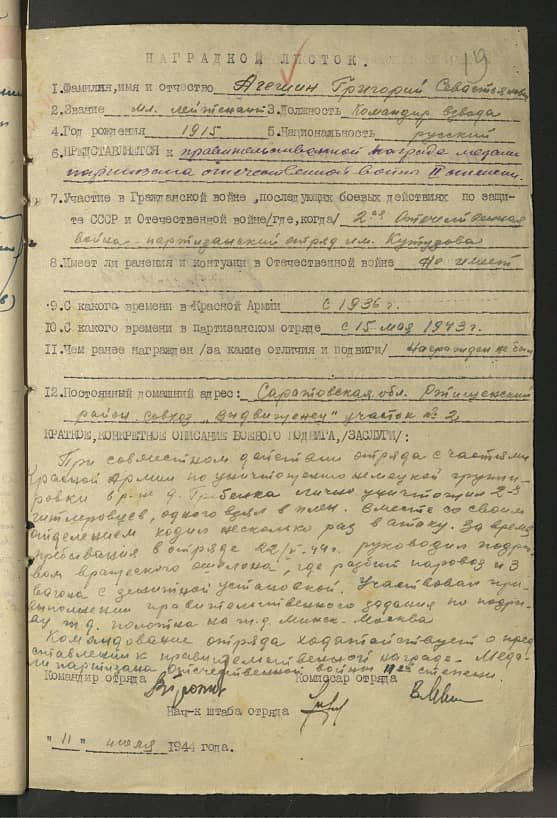 19
НАГРАДНОЙ ЛИСТОК.
1.Фамилия,имя и отчество Агешин Григорий Севастьянович
2.Звание мл. лейтенант 3.Должность Командир взвода
4.Год рождения 1915 5.Национальность русский
6.ПРЕДСТАВЛЯЕТСЯ к правительственной награде медали
партизана отечественной войны II степени.
7.Участие в Гражданской войне ,последующих боевых действиях по защи-
те СССР и Отечественной войне/где,когда/ 2-ая Отечественная
война - партизанский отряд им. Кутузова
8.Имеет ли ранения и контузии в Отечественной войне Не имеет
9.С какого времени в Красной Армии с 1936 г.
10.С какого времени в партизанском отряде с 15 мая 1943 г.
11.Чем ранее награжден /за какие отличия и подвиги/ Награжден не был
12.Постоянный домашний адрес: Саратовская обл. Ртищенский
район совхоз "Выдвиженец" участок № 2
КРАТКОЕ,КОНКРЕТНОЕ ОПИСАНИЕ БОЕВОГО ПОДВИГА,/ЗАСЛУГИ/:
При совместном действии отряда с частями
Красной Армии по уничтожению немецкой группи-
ровки в р-не д. лично уничтожил 2-х
гитлеровцев, одного взял в плен. Вместе со своим
отделением ходил несколько раз в атаку. За время
пребывания в отряде руководил подры-
вом вражеского эшелона, где разбит паровоз и 3
вагона с зенитной установкой. Участвовал при
выполнении правительственного задания по подры-
ву ж.д. полотна на ж.д. Минск-Москва
Командование отряда ходатайствует о пред
ставлении к правительственной награде - Меда-
ли партизана Отечественной войны II-ой степени.
Командир отряда Комиссар отряда
Нач-к штаба отряда
"11" июля 1944 года.